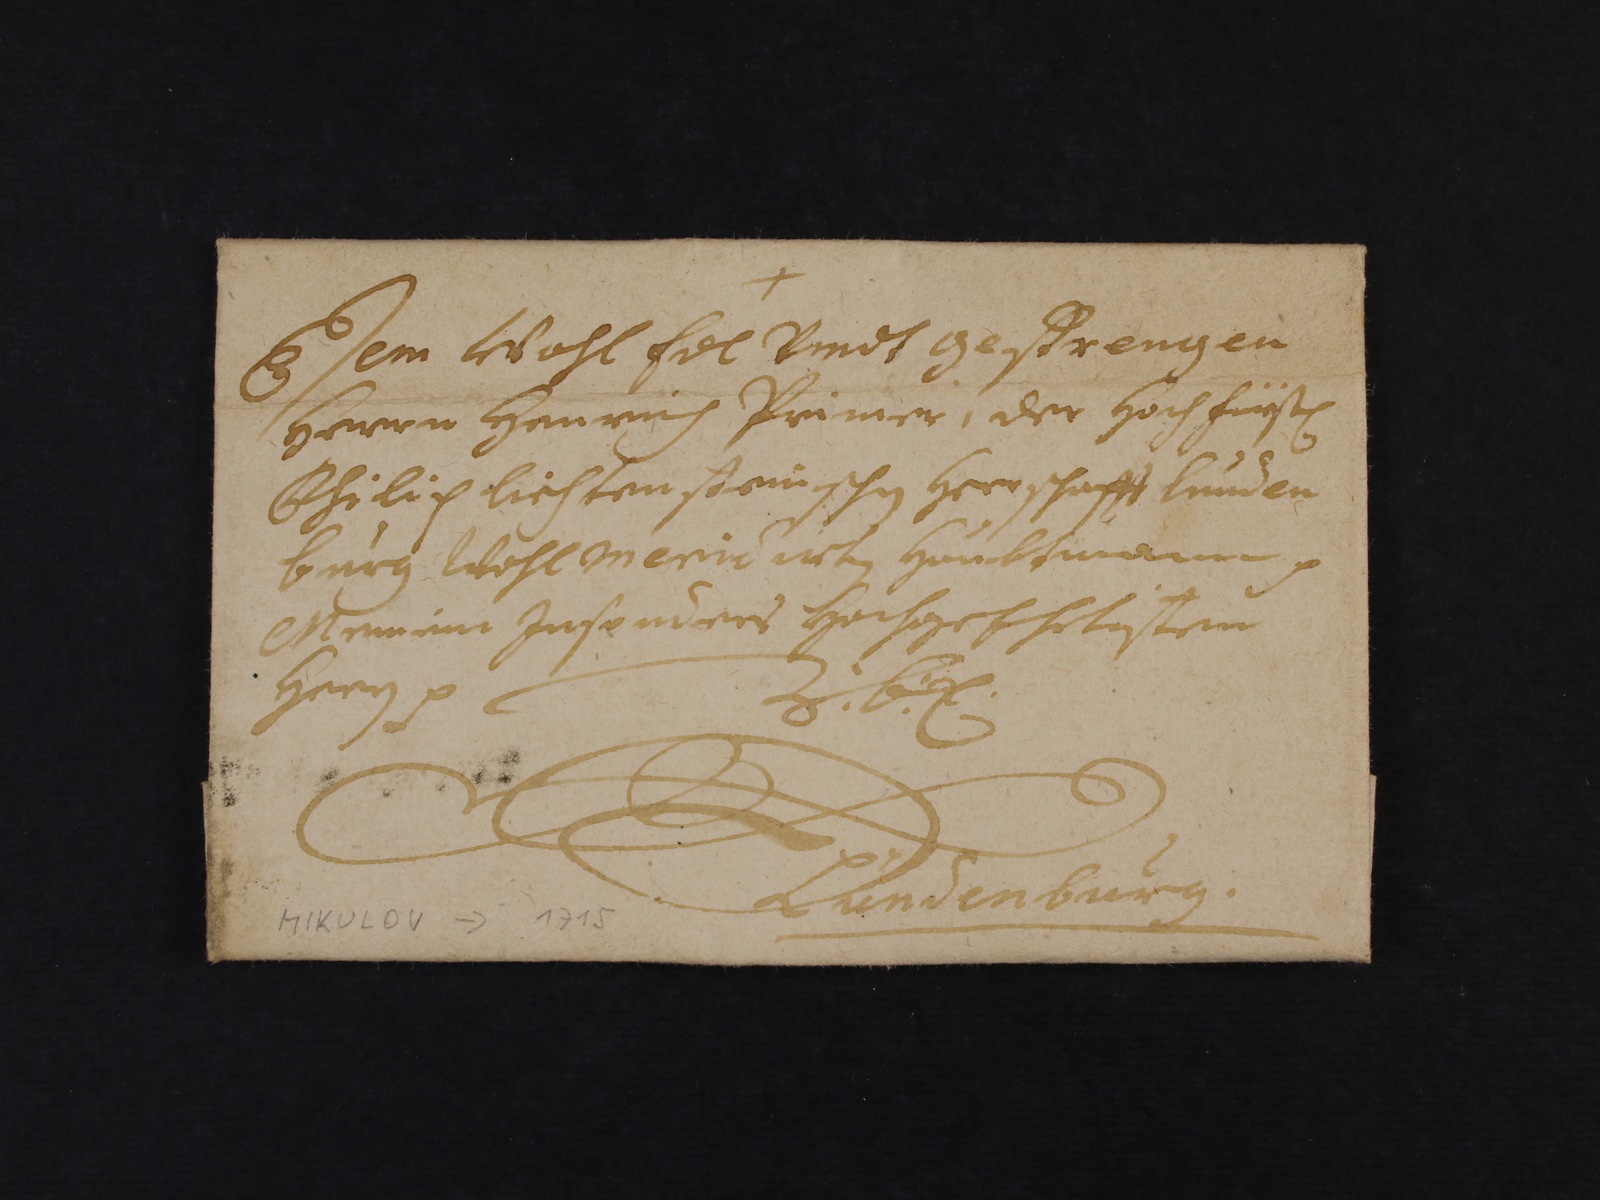 +
Dem Wohl Edl Vndt Gestrengen
Herrn Henrich Primer, der Hochfürstl
Philip Liechtensteinischen Herrschafft Lunden
burg Wohl Meritirten Haubtmann p
Meinem Insonders Hochgeehrtisten
Herrn p
Lundenburg.
MIKULOV → 1715